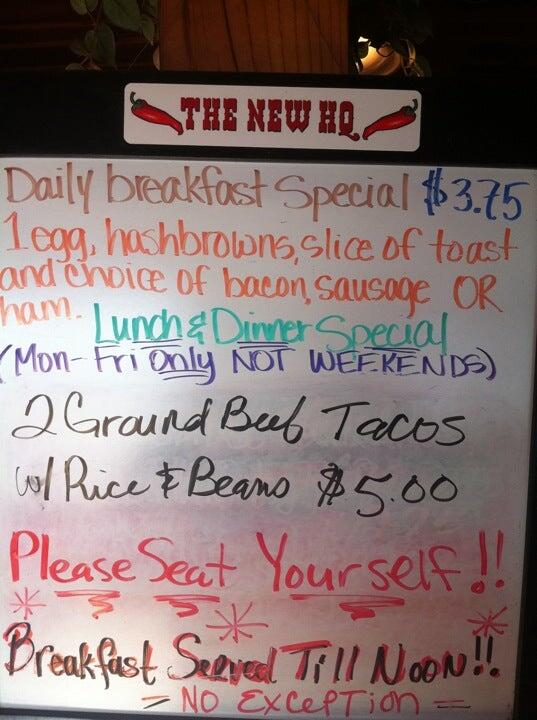 THE NEW HQ
Daily breakfast Special $3.75
1 egg, hashbrowns, slice of toast
and choice of bacon, sausage OR
ham.
Lunch & Dinner Special
(Mon-Fri Only NOT WEEKENDS)
2 Ground Beef Tacos
w/ Rice & Beans $5.00
Please Seat Yourself!!
Breakfast Served Till Noon!!
= NO EXCEPTION =